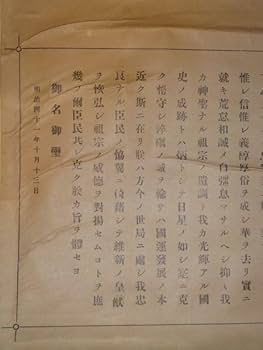 惟レ信惟レ義醇厚俗ヲ成シ華ヲ去リ實ニ
就キ荒怠相誡メ自彊息マサルヘシ抑〻我
カ神聖ナル祖宗ノ遺訓ト我カ光輝アル國
史ノ成跡トハ炳トシテ日星ノ如シ寔ニ克
ク恪守シ淬礪ノ誠ヲ輸サハ國運發展ノ本
近ク斯ニ在リ朕ハ方今ノ世局ニ處シ我忠
良ナル臣民ノ協翼ニ倚藉シテ維新ノ皇猷
ヲ恢弘シ祖宗ノ威德ヲ對揚セムコトヲ庶
幾フ爾臣民其レ克ク朕カ旨ヲ體セヨ
御名御璽
明治四十一年十月十三日